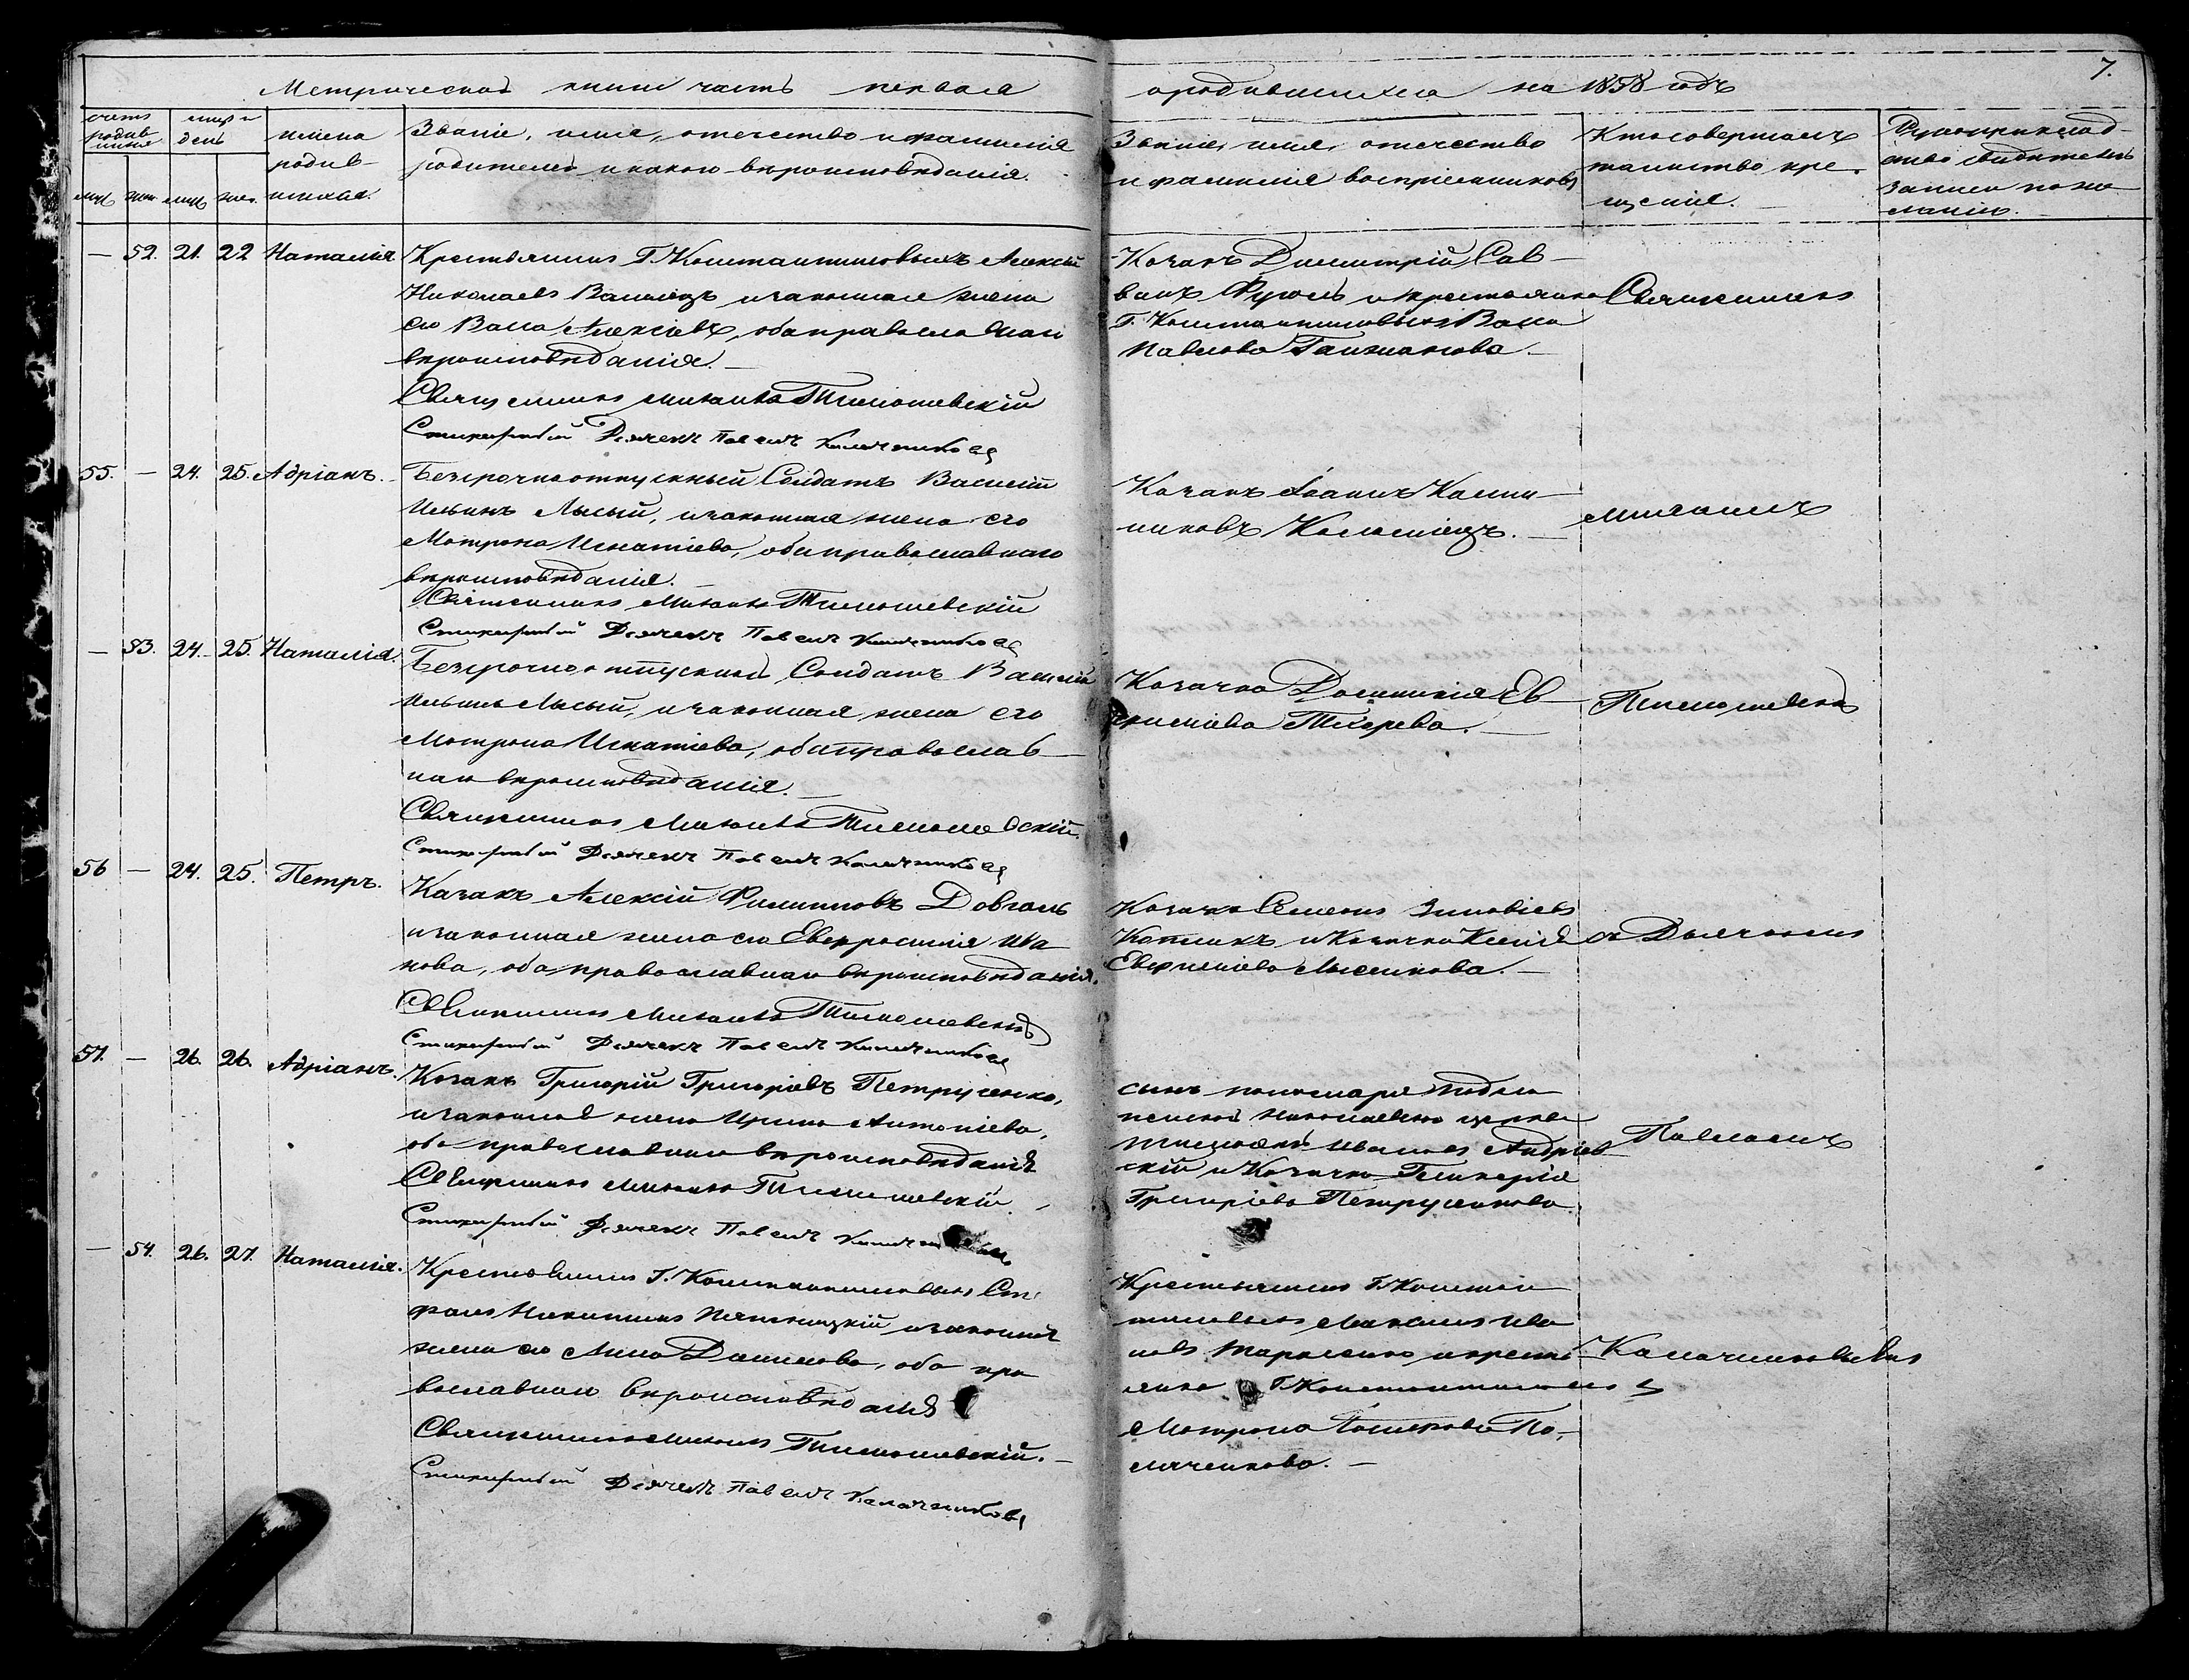 Метрической книги часть первая о родившихся на 1858 годъ
7.
счетъ родившихся
мѣсяцъ и день
муж. жен. муж. жен.
имена родив-
шихся.
Званіе, имя, отчество и фамилія
родителей и какого вѣроисповѣданія.
Званіе, имя, отчество
и фамилія воспріемниковъ
Кто совершалъ
таинство кре-
щенія.
Рукоприклад-
ство свидѣтелей
записи по же-
ланію.
— 52. 21. 22 Наталія.
Крестьянинъ Г. Константиновыхъ Алексѣй
Николаевъ и законная жена
его Алексіева, оба православнаго
вѣроисповѣданія.—
Священникъ Михаилъ Тимошевскій
Дьячекъ Павелъ Калачниковъ
Козакъ Димитрій Сав-
винъ и крестьянка
Г. Константиновыхъ
Павлова
Священникъ
55. — 24. 25. Адріанъ.
Безсрочноотпускный Солдатъ Василій
Ильинъ Лысый, и законная жена его
Мотрона Игнатіева, оба православнаго
вѣроисповѣданія.—
Священникъ Михаилъ Тимошевскій
Дьячекъ Павелъ Калачниковъ
Козакъ Іоаннъ Калин-
никовъ Коломіецъ.—
Михаилъ
— 53. 24. 25. Наталія.
Безсрочноотпускной Солдатъ Василій
Ильинъ Лысый, и законная жена его
Мотрона Игнатіева, оба православ-
наго вѣроисповѣданія.—
Священникъ Михаилъ Тимошевскій.
Дьячекъ Павелъ Калачниковъ
Козачка Домникія Ев-
фиміева
Тимошевскій
56 — 24. 25. Петръ.
Козакъ Алексій Филиповъ Довгаль
и законная жена его Евфросинія Ива-
нова, оба православнаго вѣроисповѣданія.
Священникъ Михаилъ Тимошевскій
Дьячекъ Павелъ Калачниковъ
Козакъ Семенъ Зиновіевъ
и Козачка Ксенія
Евфиміева
съ Дьячкомъ
57. — 26. 26. Адріанъ.
Козакъ Григорій Григоріевъ Петрусенко,
и законная жена Ирина Антоніева,
оба православнаго вѣроисповѣданія
Священникъ Михаилъ Тимошевскій.
Дьячекъ Павелъ
сынъ пономаря
Николаевской церкви
Ивановъ Андріев-
скій и Козачка Гликерія
Григоріева Петрусенкова.
Павломъ
— 54. 26. 27. Наталія.
Крестьянинъ Г. Константиновыхъ Сте-
фанъ Никитинъ и законная
жена его Анна Данилова, оба пра-
вославнаго вѣроисповѣданія
Священникъ Михаилъ Тимошевскій.—
Дьячекъ Павелъ Калачниковъ
Крестьянинъ Г. Констан-
тиновыхъ Максимъ Ива-
новъ Тарасенко и кресть-
янка Г. Константиновыхъ
Мотрона По-
Калачниковымъ